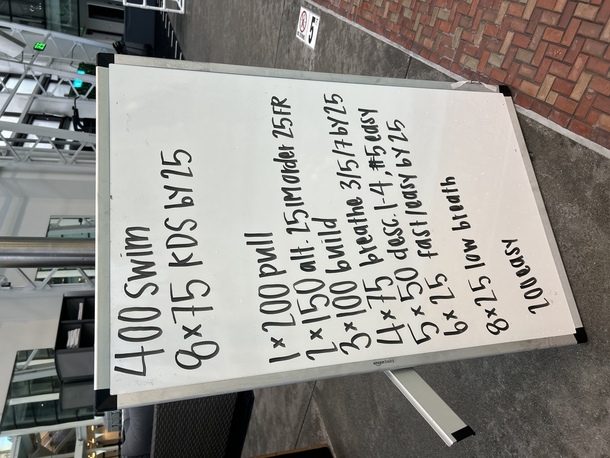 400 swim
8x75 KDS by 25
1x200 pull
2x150 alt. 25 IM order 25 FR
3x100 build
4x75 breathe 3/5/7 by 25
5x50 desc. 1-4, #5 easy
6x25 fast/easy by 25
8x25 low breath
200 easy